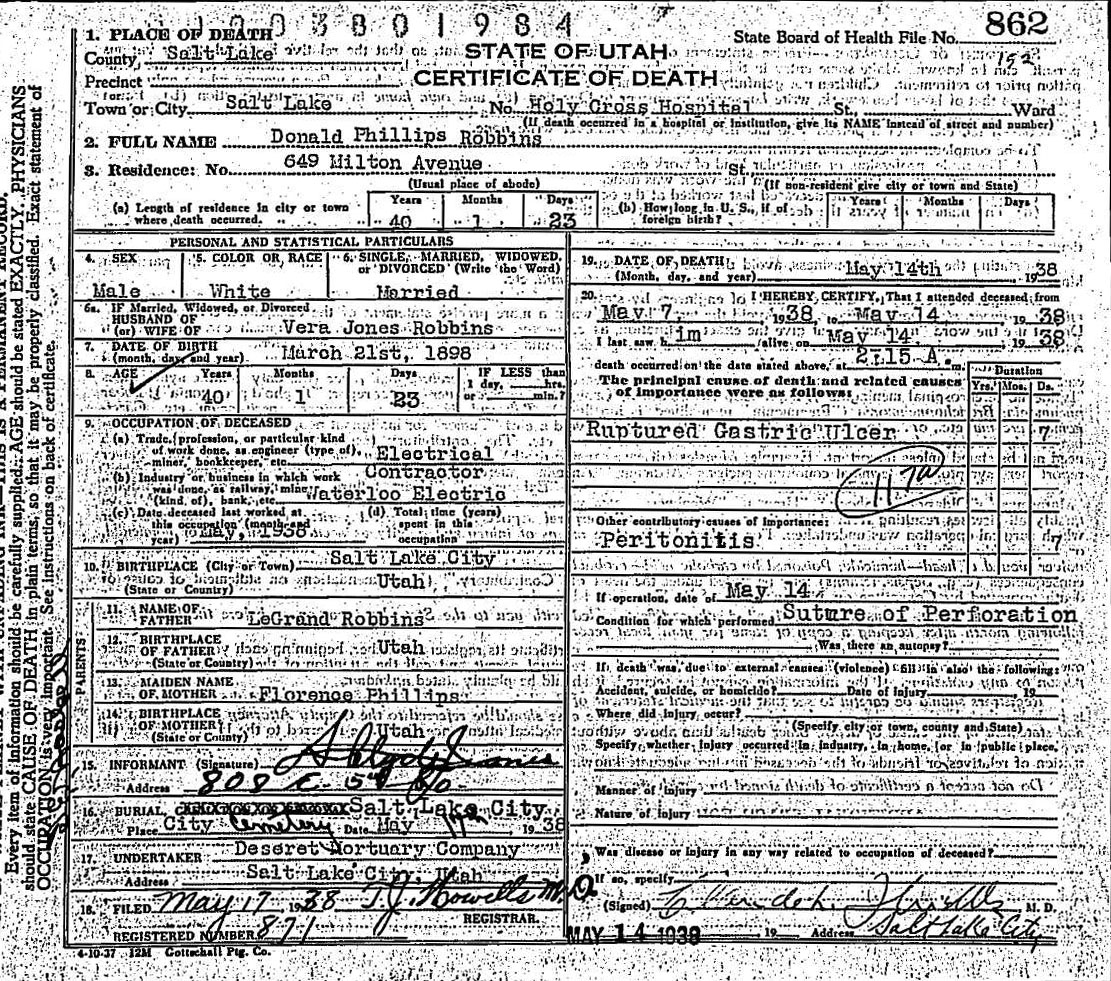 1003801984
State Board of Health File No. 862
152
1. PLACE OF DEATH
County, Salt Lake
STATE OF UTAH
CERTIFICATE OF DEATH
Precinct
Town or City Salt Lake No. Holy Cross Hospital St., Ward
(If death occurred in a hospital or institution, give its NAME instead of street and number)
2. FULL NAME Donald Phillips Robbins
3. Residence: No. 649 Milton Avenue St.
(Usual place of abode) (If non-resident give city or town and State)
(a) Length of residence in city or town where death occurred. Years 40 Months 1 Days 23
(b) How long in U. S., if of foreign birth? Years Months Days
PERSONAL AND STATISTICAL PARTICULARS
4. SEX Male
5. COLOR OR RACE White
6. SINGLE, MARRIED, WIDOWED, or DIVORCED (Write the Word) Married
6a. IF Married, Widowed, or Divorced
HUSBAND OF
(or) WIFE OF Vera Jones Robbins
7. DATE OF BIRTH
(month, day, and year) March 21st, 1898
8. AGE Years 40 Months 1 Days 23 IF LESS than 1 day, hrs. or min.?
9. OCCUPATION OF DECEASED
(a) Trade, profession, or particular kind of work done, as engineer (type of), miner, bookkeeper, etc. Electrical
Contractor
(b) Industry or business in which work was done, as railway, mine (kind of), bank, etc. Waterloo Electric
(c) Date deceased last worked at this occupation (month and year) May, 1938
(d) Total time (years) spent in this occupation
10. BIRTHPLACE (City or Town) Salt Lake City
(State or Country) Utah
PARENTS
11. NAME OF FATHER LeGrand Robbins
12. BIRTHPLACE OF FATHER (State or Country) Utah
13. MAIDEN NAME OF MOTHER Florence Phillips
14. BIRTHPLACE OF MOTHER (State or Country) Utah
15. INFORMANT (Signature)
Address 808 E. 5th So
16. BURIAL, Salt Lake City
Place City Cemetery Date May 17th 1938
17. UNDERTAKER Deseret Mortuary Company
Address Salt Lake City, Utah
18. FILED May 17 1938 T.J. Howells M.D.
REGISTRAR.
REGISTERED NUMBER 871
4-10-37 12M Gottschall Ptg. Co.
19. DATE OF DEATH
(Month, day, and year) May 14th 1938
20. I HEREBY CERTIFY, That I attended deceased from
May 7, 1938 to May 14 1938
I last saw him alive on May 14 1938
death occurred on the date stated above, at 2:15 A. m.
The principal cause of death and related causes of importance were as follows:
Duration
Yrs. Mos. Ds.
Ruptured Gastric Ulcer 7
117a
Other contributory causes of importance:
Peritonitis 7
If operation, date of May 14
Condition for which performed Suture of Perforation
Was there an autopsy?
If death was due to external causes (violence) fill in also the following:
Accident, suicide, or homicide? Date of injury 19
Where did injury occur?
(Specify city or town, county and State)
Specify whether injury occurred in industry, in home, or in public place.
Manner of injury
Nature of injury
Was disease or injury in any way related to occupation of deceased?
If so, specify
(Signed) M. D.
MAY 14 1938 19 Address Salt Lake City
Every item of information should be carefully supplied. AGE should be stated EXACTLY. PHYSICIANS
should state CAUSE OF DEATH in plain terms, so that it may be properly classified. Exact statement of
OCCUPATION is very important. See instructions on back of certificate.